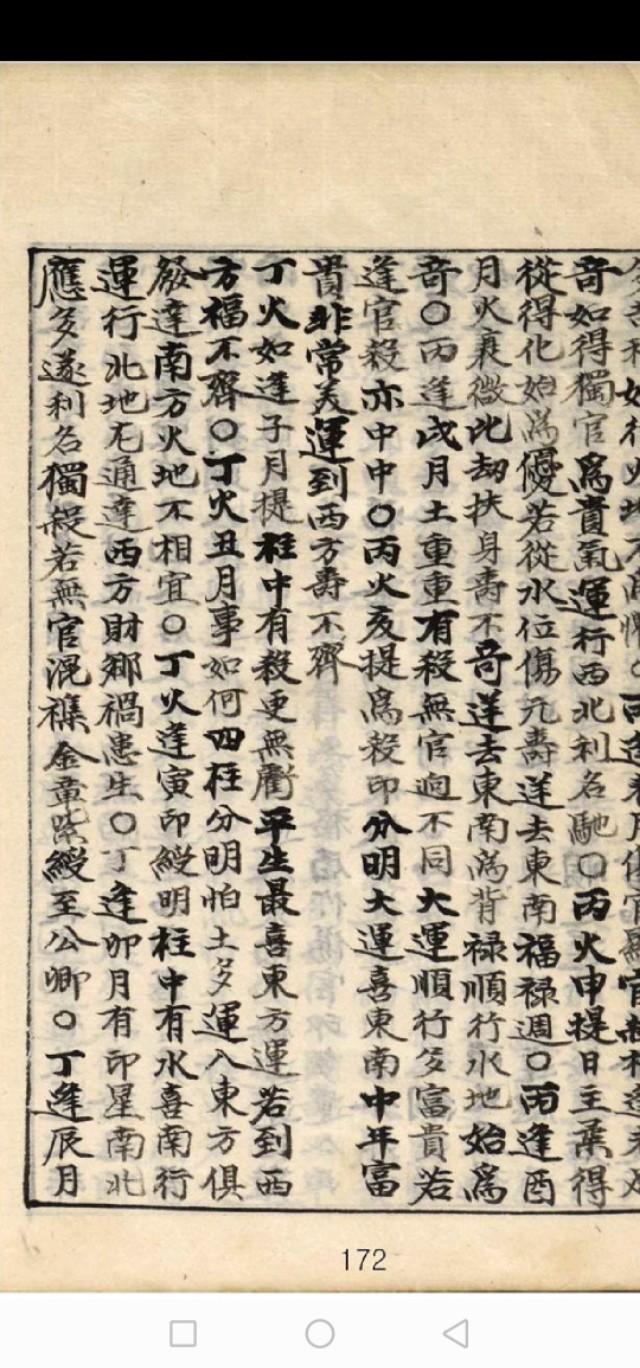 奇如得獨官爲貴氣運行西北利名馳○丙火申提日主柔得
從得化始爲優若從水位傷元壽逆去東南福禄週○丙逢酉
月火衰微比刼扶身壽不奇逆去東南爲背禄順行水地始爲
奇○丙逢戌月土重重有殺無官逈不同大運順行多富貴若
逢官殺亦中中○丙火亥提爲殺印分明大運喜東南中年富
貴非常美運到西方壽不齊
丁火如逢子月提柱中有殺更無衢平生最喜東方運若到西
方福不齊○丁火丑月事如何四柱分明怕土多運入東方俱
發達南方火地不相宜○丁火逢寅印綬明柱中有水喜南行
運行北地尤通達西方財鄉禍患生○丁逢卯月有印星南北
應多遂利名獨殺若無官混襍金章紫綬至公卿○丁逢辰月
172